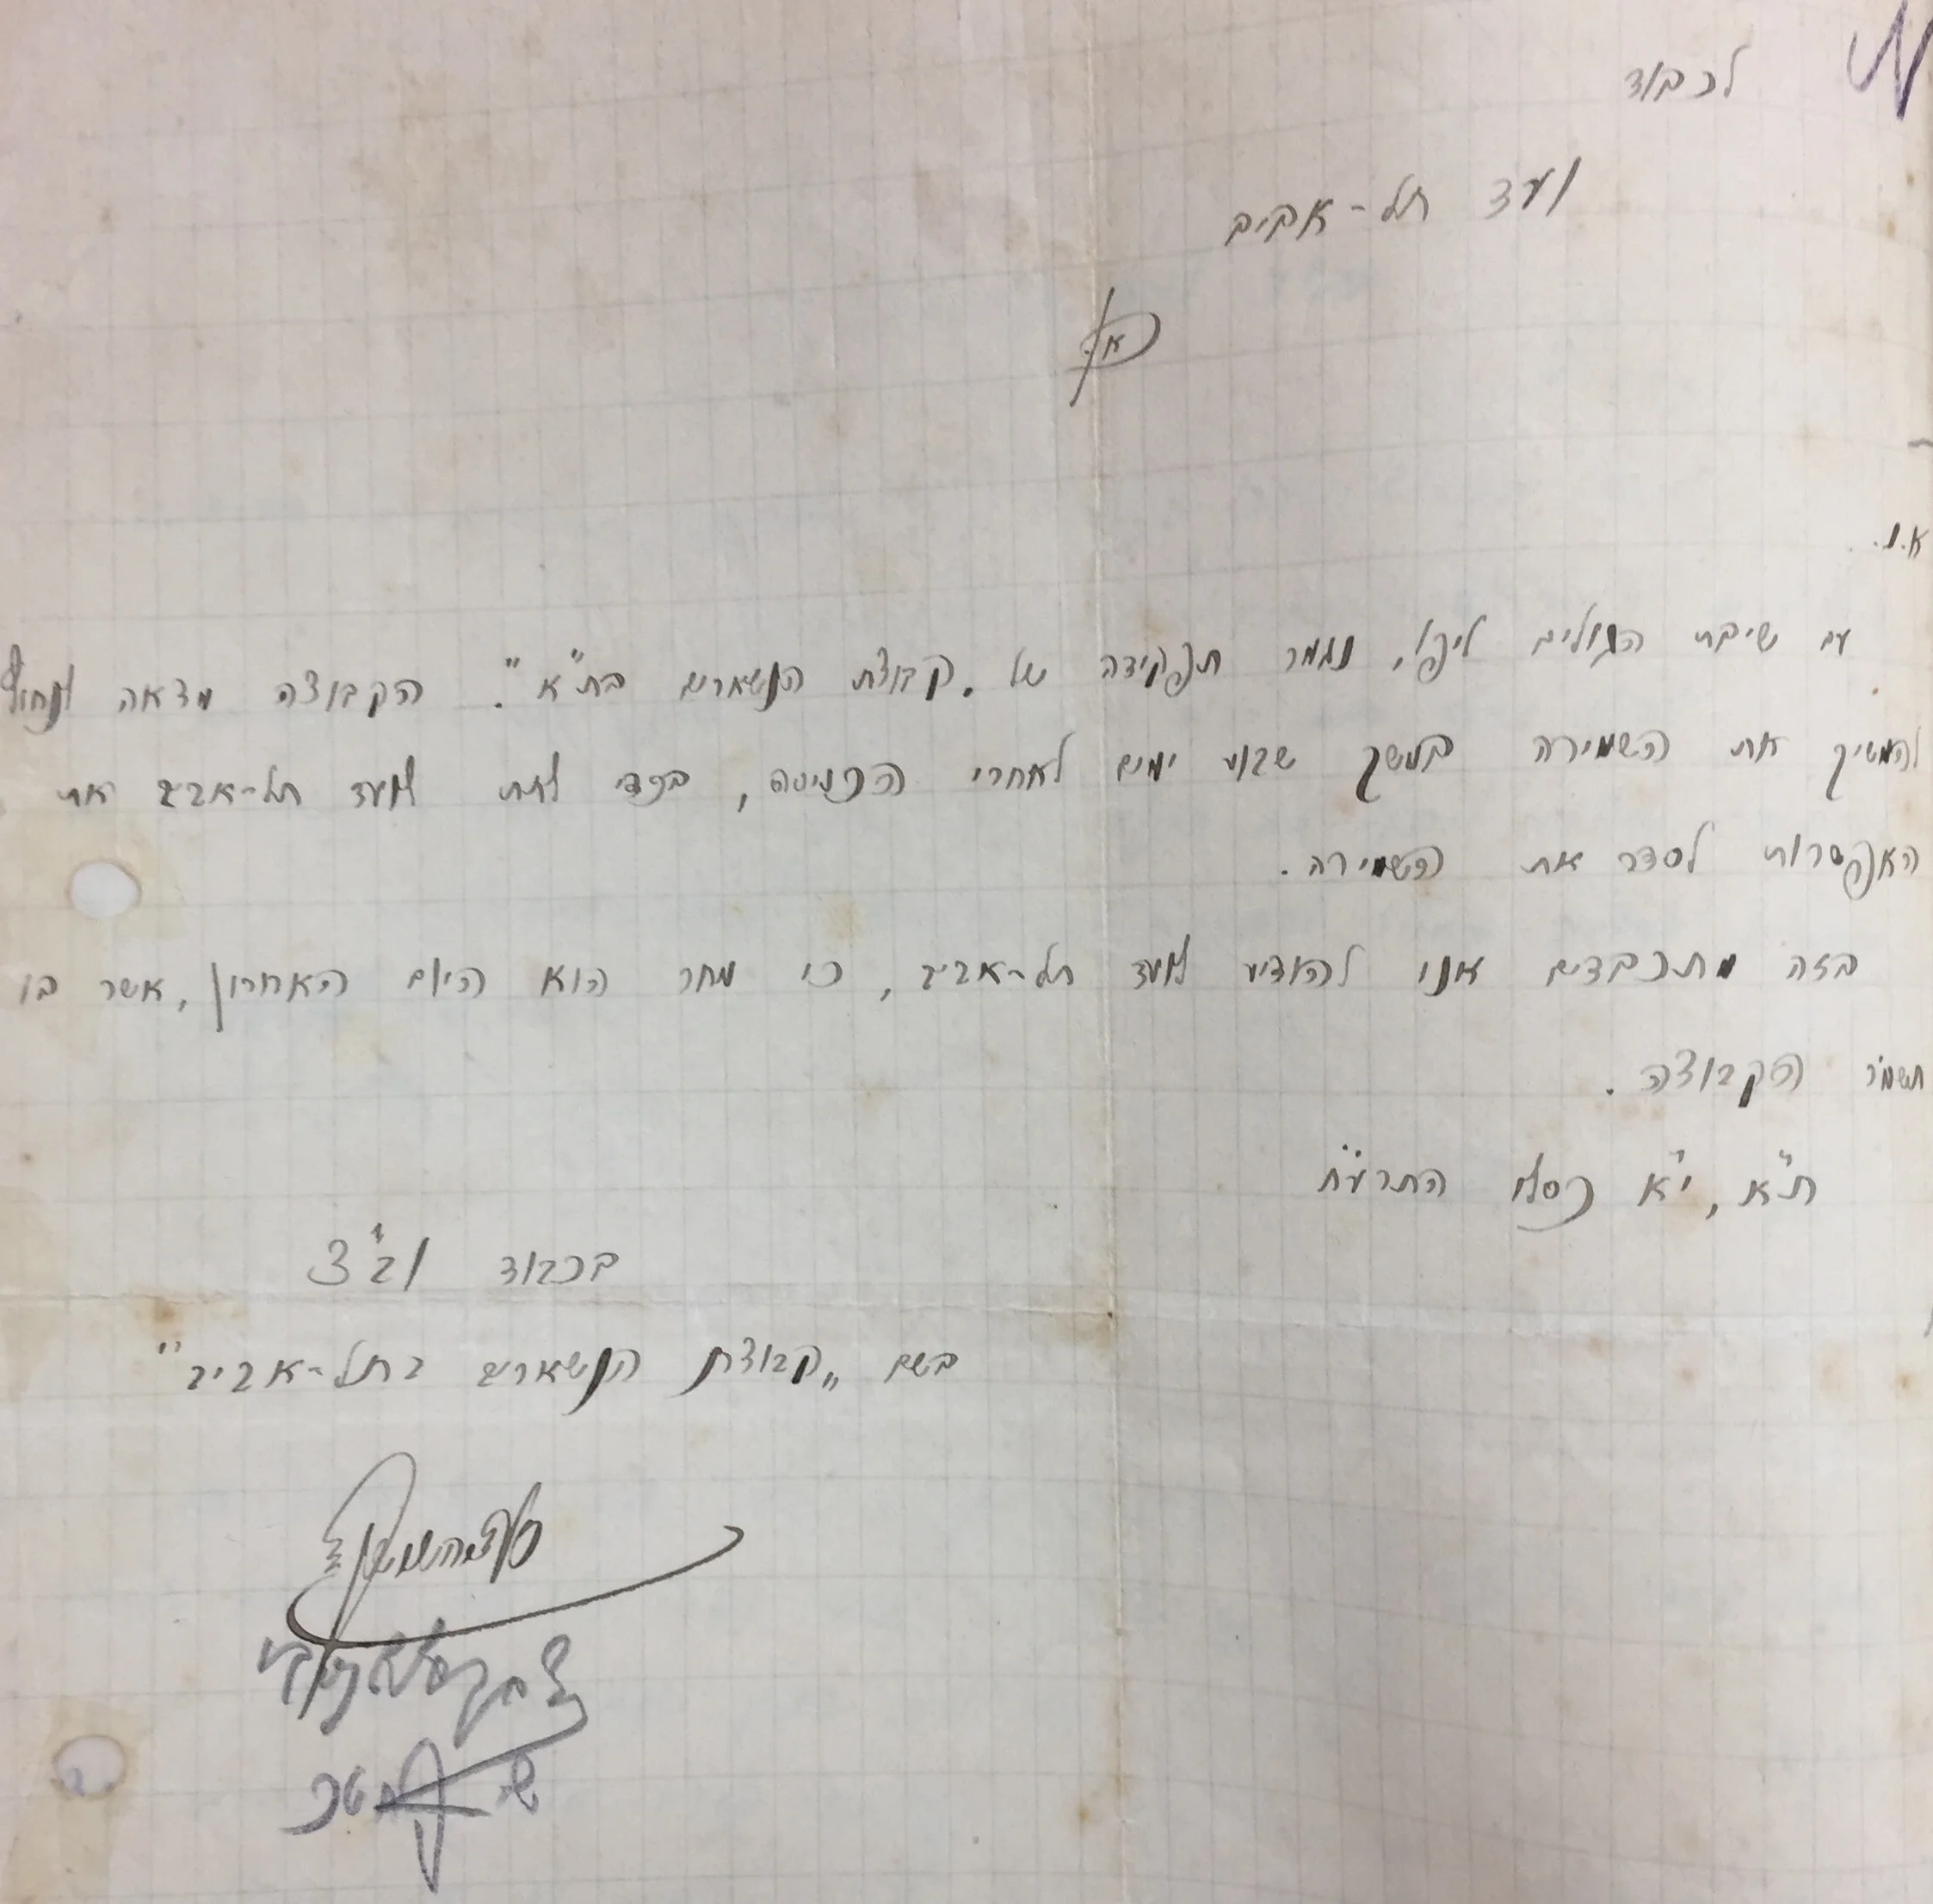 לכבוד
ועד תל-אביב
פה
א.נ.
עם שיבת הגולים ליפו, נגמר תפקידה של „קבוצת הנשארים בת"א". הקבוצה מצאה לנחוץ
להמשיך את השמירה במשך שבוע ימים לאחרי הכניסה, בכדי לתת לועד תל-אביב את
האפשרות לסדר את השמירה.
בזה מתכבדים אנו להודיע לועד תל-אביב, כי מחר הוא היום האחרון, אשר בו
תשמר הקבוצה.
ת"א, י"א כסלו התרע"ח
בכבוד וב"צ
בשם „קבוצת הנשארים בתל-אביב"